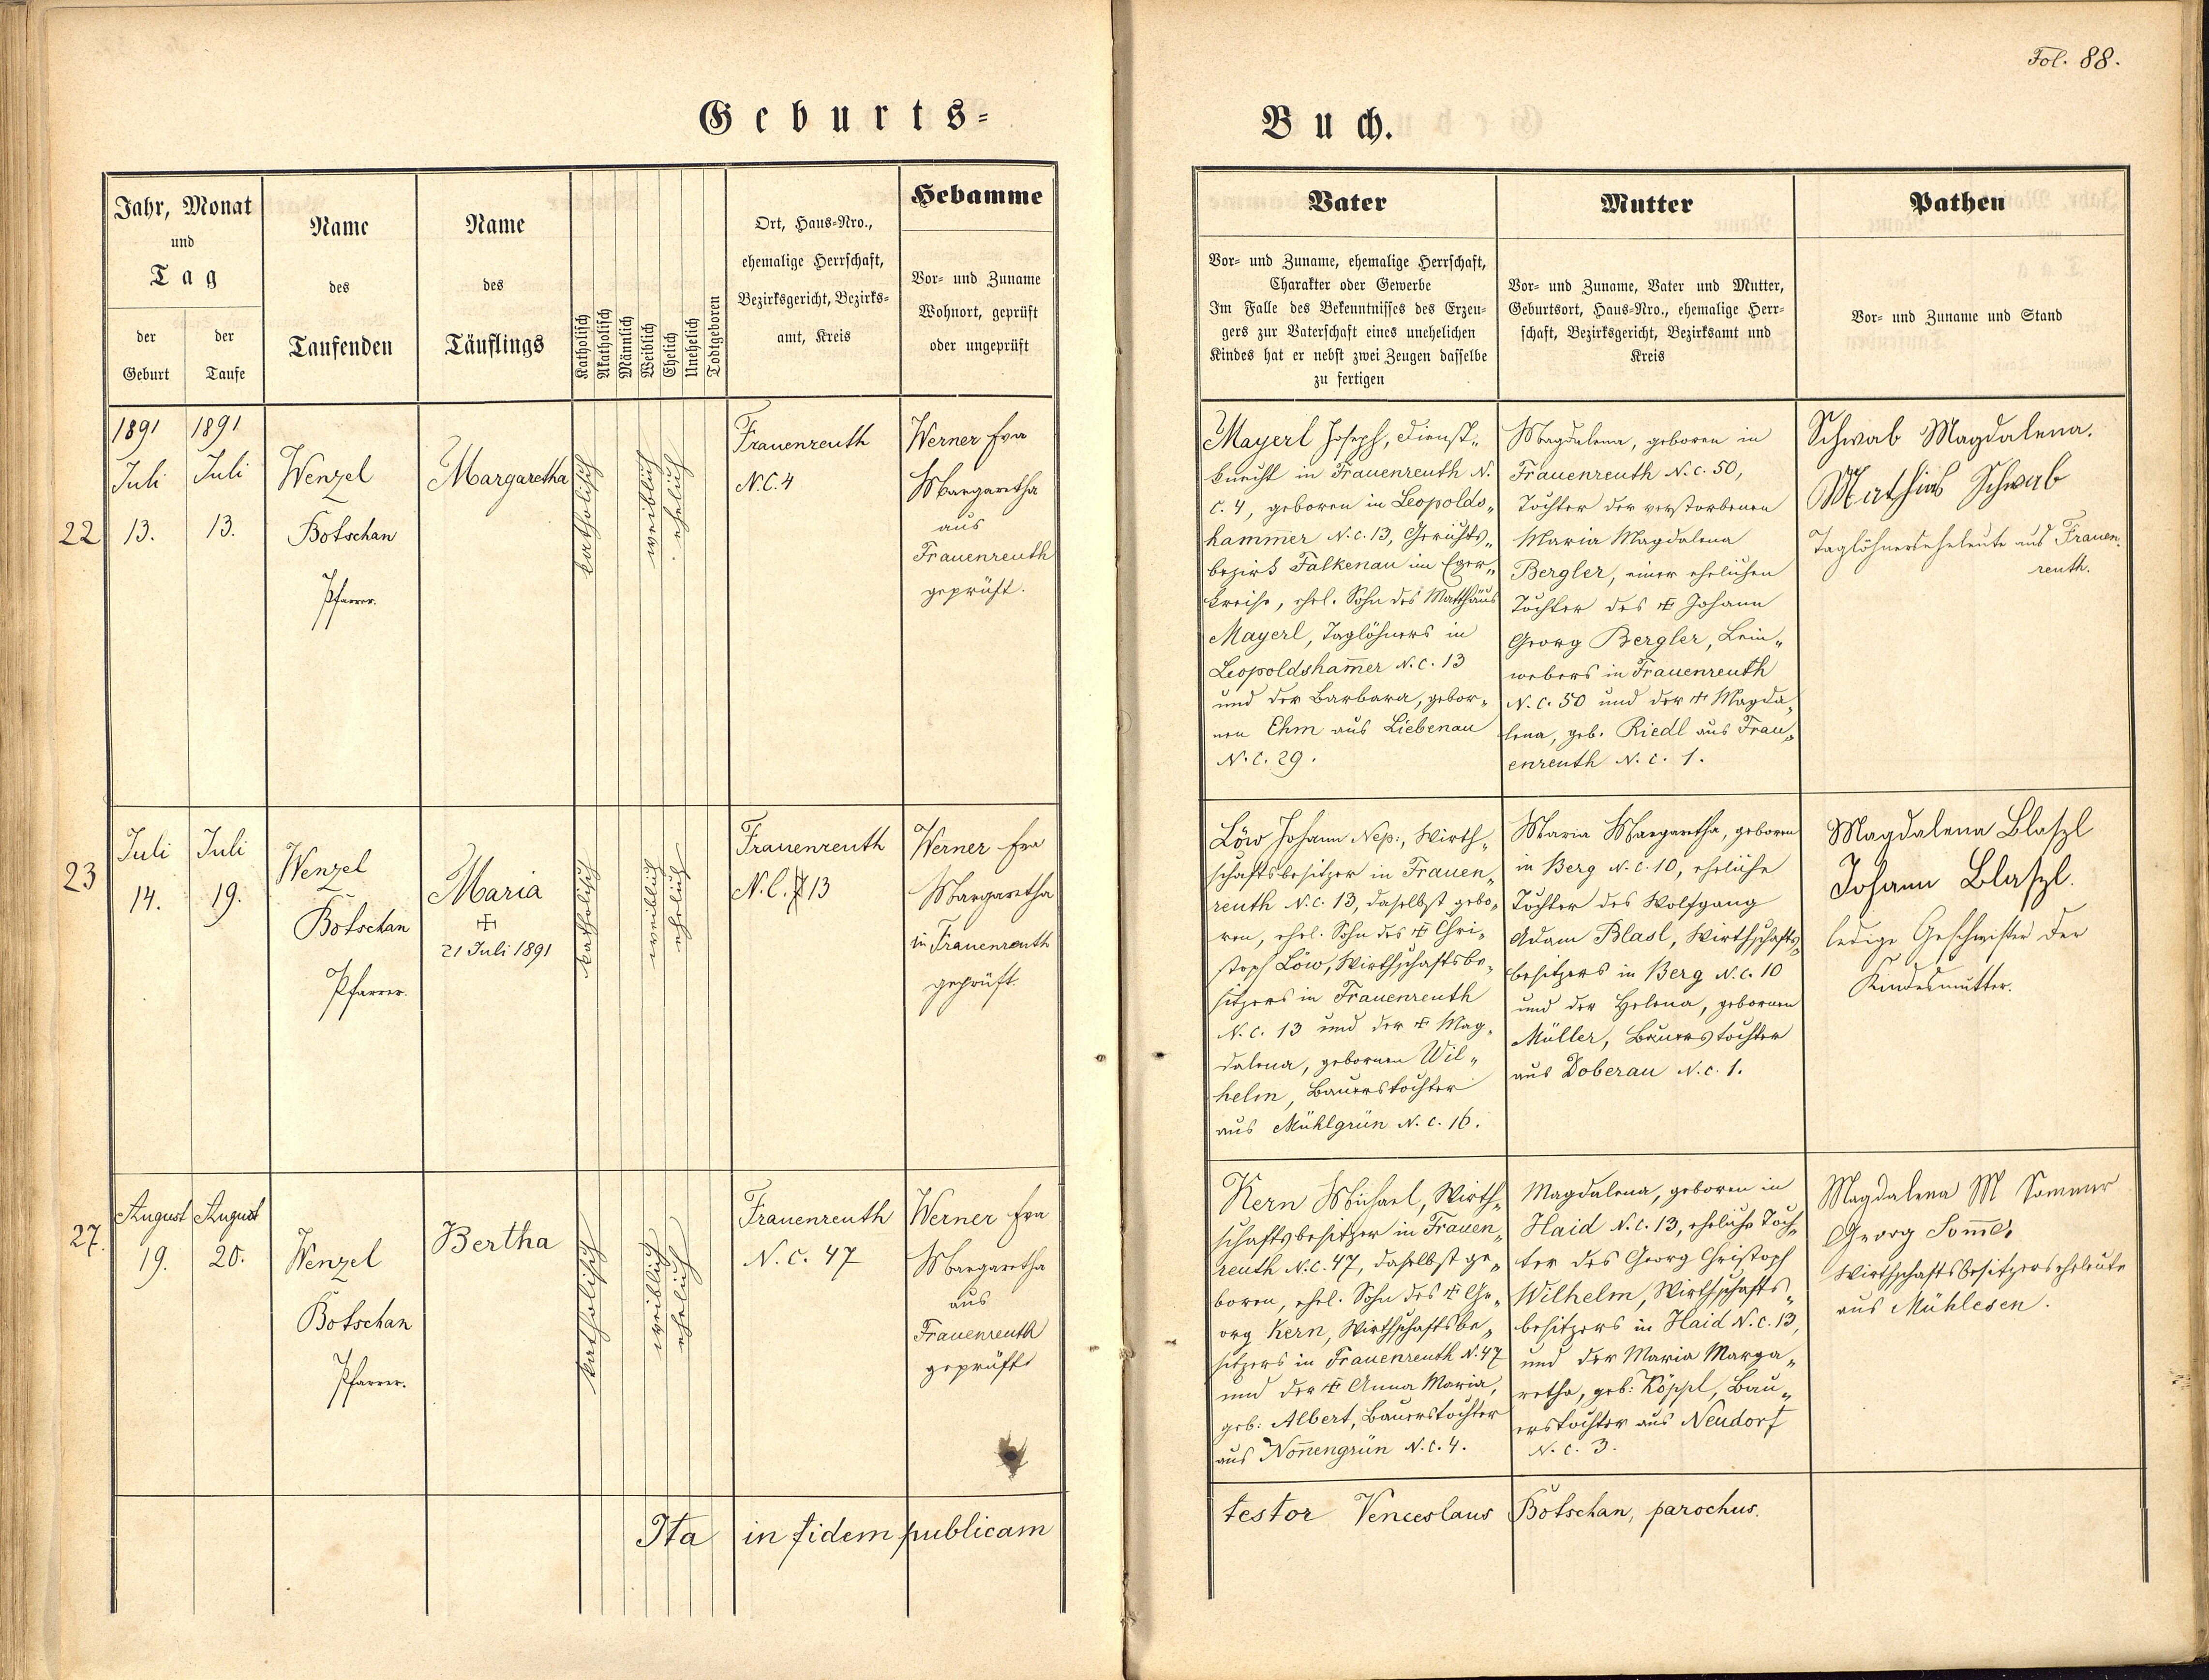 Fol. 88.
Geburts=
Buch.
Jahr, Monat
und
Tag
der
Geburt
der
Taufe
Name
des
Taufenden
Name
des
Täuflings
Katholisch
Akatholisch
Männlich
Weiblich
Ehelich
Unehelich
Todtgeboren
Ort, Haus=Nro.,
ehemalige Herrschaft,
Bezirksgericht, Bezirks=
amt, Kreis
Hebamme
Vor= und Zuname
Wohnort, geprüft
oder ungeprüft
Vater
Vor= und Zuname, ehemalige Herrschaft,
Charakter oder Gewerbe
Im Falle des Bekenntnisses des Erzeu=
gers zur Vaterschaft eines unehelichen
Kindes hat er nebst zwei Zeugen dasselbe
zu fertigen
Mutter
Vor= und Zuname, Vater und Mutter,
Geburtsort, Haus=Nro., ehemalige Herr=
schaft, Bezirksgericht, Bezirksamt und
Kreis
Pathen
Vor= und Zuname und Stand
22
1891
Juli
13.
1891
Juli
13.
Wenzel
Botschan
Pfarrer.
Margaretha
katholisch
weiblich
ehelich
Frauenreuth
N.C. 4
Werner Eva
Margaretha
aus
Frauenreuth
geprüft.
Mayerl Joseph, Dienst„
knecht in Frauenreuth N.
c. 4, geboren in Leopolds„
hammer N.c. 13, Gerichts„
bezirk Falkenau im Eger„
kreise, ehel. Sohn des Matthäus
Mayerl, Taglöhners in
Leopoldsham̅er N.c. 13
und der Barbara, gebor„
nen Ehm aus Liebenau
N.C. 29.
Magdalena, geboren in
Frauenreuth N.c. 50,
Tochter der verstorbenen
Maria Magdalena
Bergler, einer ehelichen
Tochter des ✠ Johann
Georg Bergler, Lein„
webers in Frauenreuth
N.c. 50 und der ✠ Magda„
lena, geb. Riedl aus Frau„
enreuth N.c. 1.
Schwab Magdalena.
Mathias Schwab
Taglöhnerseheleute aus Frauen„
reuth.
23
Juli
14.
Juli
19.
Wenzel
Botschan
Pfarrer.
Maria
✠
21 Juli 1891
katholisch
weiblich
ehelich
Frauenreuth
N.C. 13
Werner Eva
Margaretha
in Frauenreuth
geprüft.
Löw Johann Nep:, Wirth„
schaftsbesitzer in Frauen„
reuth N.c. 13, daselbst gebo„
ren, ehel. Sohn des ✠ Chri„
stoph Löw, Wirthschaftsbe„
sitzers in Frauenreuth
N.c. 13 und der ✠ Mag„
dalena, gebornen Wil„
helm, Bauerstochter
aus Mühlgrün N.c. 16.
Maria Margaretha, geboren
in Berg N.c. 10, eheliche
Tochter des Wolfgang
Adam Blasl, Wirthschafts„
besitzers in Berg N.c. 10
und der Helena, gebornen
Müller, Bauerstochter
aus Doberau N.c. 1.
Magdalena Blaszl
Johann Blaszl.
ledige Geschwister der
Kindesmutter.
27.
August
19.
August
20.
Wenzel
Botschan
Pfarrer.
Bertha
katholisch
weiblich
ehelich
Frauenreuth
N.C. 47
Werner Eva
Margaretha
aus
Frauenreuth
geprüft
Kern Michael, Wirth„
schaftsbesitzer in Frauen„
reuth N.c. 47, daselbst ge„
boren, ehel. Sohn des ✠ Ge„
org Kern, Wirthschaftsbe„
sitzers in Frauenreuth N. 47
und der ✠ Anna Maria,
geb: Albert, Bauerstochter
aus Non̅engrün N.c. 4.
Magdalena, geboren in
Haid N.c. 13, eheliche Toch„
ter des Georg Christoph
Wilhelm, Wirthschafts„
besitzers in Haid N.c. 13,
und der Maria Marga„
retha, geb: Köppl, Bau„
erstochter aus Neudorf
N.c. 3.
Magdalena M Sommer
Georg Som̅er
Wirthschaftsbesitzerseheleute
aus Mühlesen.
Ita in fidem publicam
testor Venceslaus Botschan, parochus.